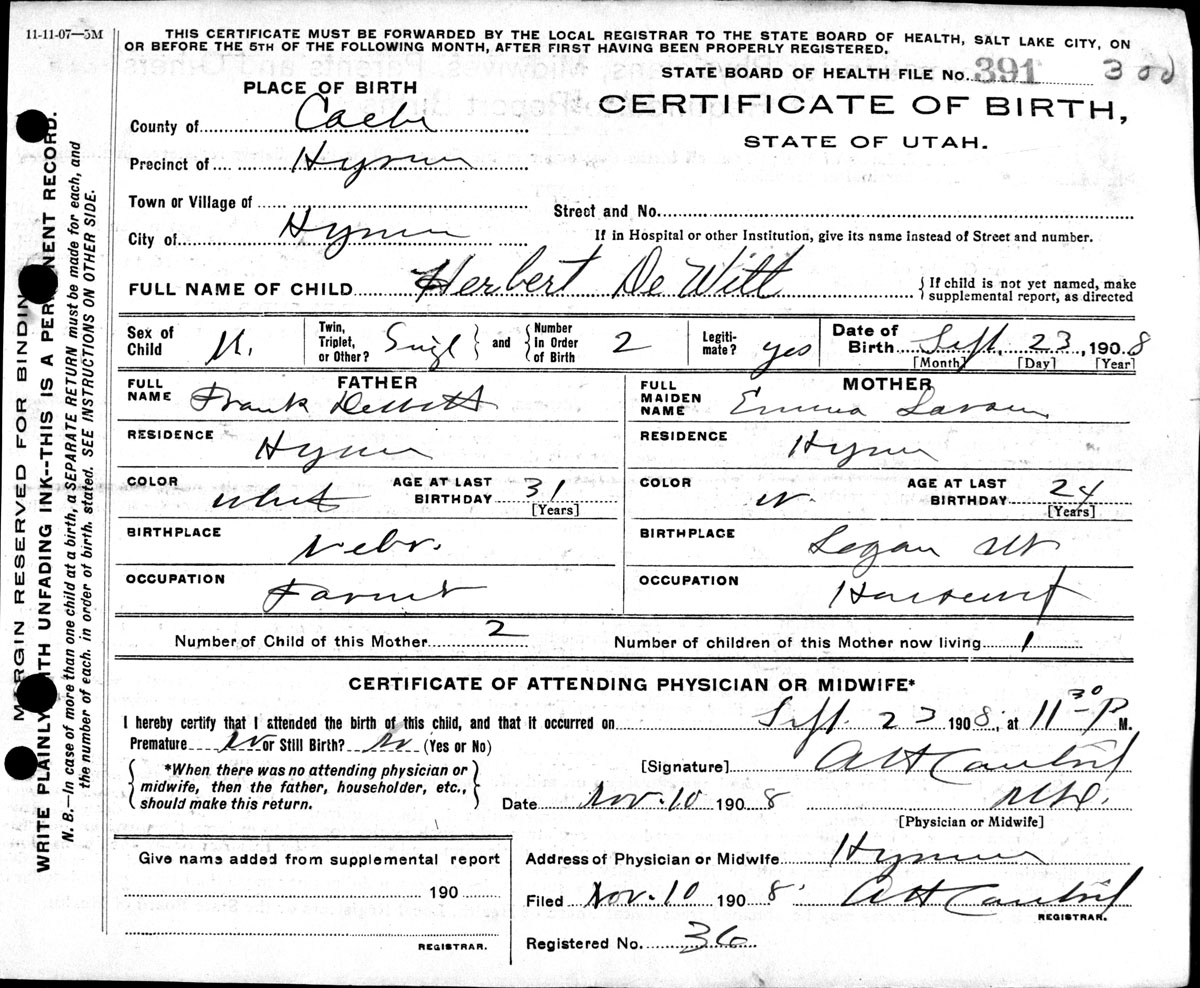 11-11-07—5M
THIS CERTIFICATE MUST BE FORWARDED BY THE LOCAL REGISTRAR TO THE STATE BOARD OF HEALTH, SALT LAKE CITY, ON
OR BEFORE THE 5TH OF THE FOLLOWING MONTH, AFTER FIRST HAVING BEEN PROPERLY REGISTERED.
STATE BOARD OF HEALTH FILE No. 391 300
PLACE OF BIRTH
CERTIFICATE OF BIRTH,
STATE OF UTAH.
County of Cache
Precinct of Hyrum
Town or Village of
Street and No.
City of Hyrum
If in Hospital or other Institution, give its name instead of Street and number.
FULL NAME OF CHILD Herbert De Witt
{ If child is not yet named, make
supplemental report, as directed
Sex of Child M.
Twin, Triplet, or Other? Singl } and { Number In Order of Birth 2
Legiti-mate? yes
Date of Birth Sept. 23, 1908
[Month] [Day] [Year]
FATHER
FULL NAME Frank DeWitt
MOTHER
FULL MAIDEN NAME Emma
RESIDENCE Hyrum
RESIDENCE Hyrum
COLOR White AGE AT LAST BIRTHDAY 31 [Years]
COLOR W. AGE AT LAST BIRTHDAY 24 [Years]
BIRTHPLACE Nebr.
BIRTHPLACE Logan Ut
OCCUPATION Farmer
OCCUPATION
Number of Child of this Mother 2
Number of children of this Mother now living 1
CERTIFICATE OF ATTENDING PHYSICIAN OR MIDWIFE*
I hereby certify that I attended the birth of this child, and that it occurred on Sept. 23 1908, at 11 30 P M.
Premature No or Still Birth? No (Yes or No)
{ *When there was no attending physician or
midwife, then the father, householder, etc.,
should make this return. }
[Signature] A H
Date Nov. 10 1908 M.D.
[Physician or Midwife]
Give name added from supplemental report
190
REGISTRAR.
Address of Physician or Midwife Hyrum
Filed Nov. 10 1908 A H
REGISTRAR.
Registered No. 36
MARGIN RESERVED FOR BINDING
WRITE PLAINLY WITH UNFADING INK--THIS IS A PERMANENT RECORD.
N. B.—In case of more than one child at a birth, a SEPARATE RETURN must be made for each, and
the number of each, in order of birth, stated. SEE INSTRUCTIONS ON OTHER SIDE.